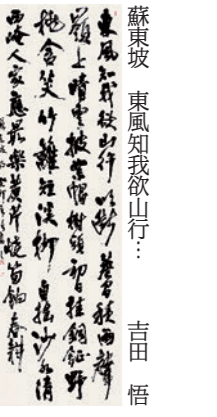 蘇東坡　東風知我欲山行…　吉田　悟
東風知我欲山行吹斷簷間積雨聲
嶺上晴雲披絮帽樹頭初日挂銅鉦野
桃含笑竹籬短溪柳自搖沙水清
西崦人家應最樂煮芹燒筍餉春耕